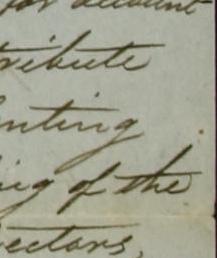 for account
tribute
enting
ing of the
ectors,